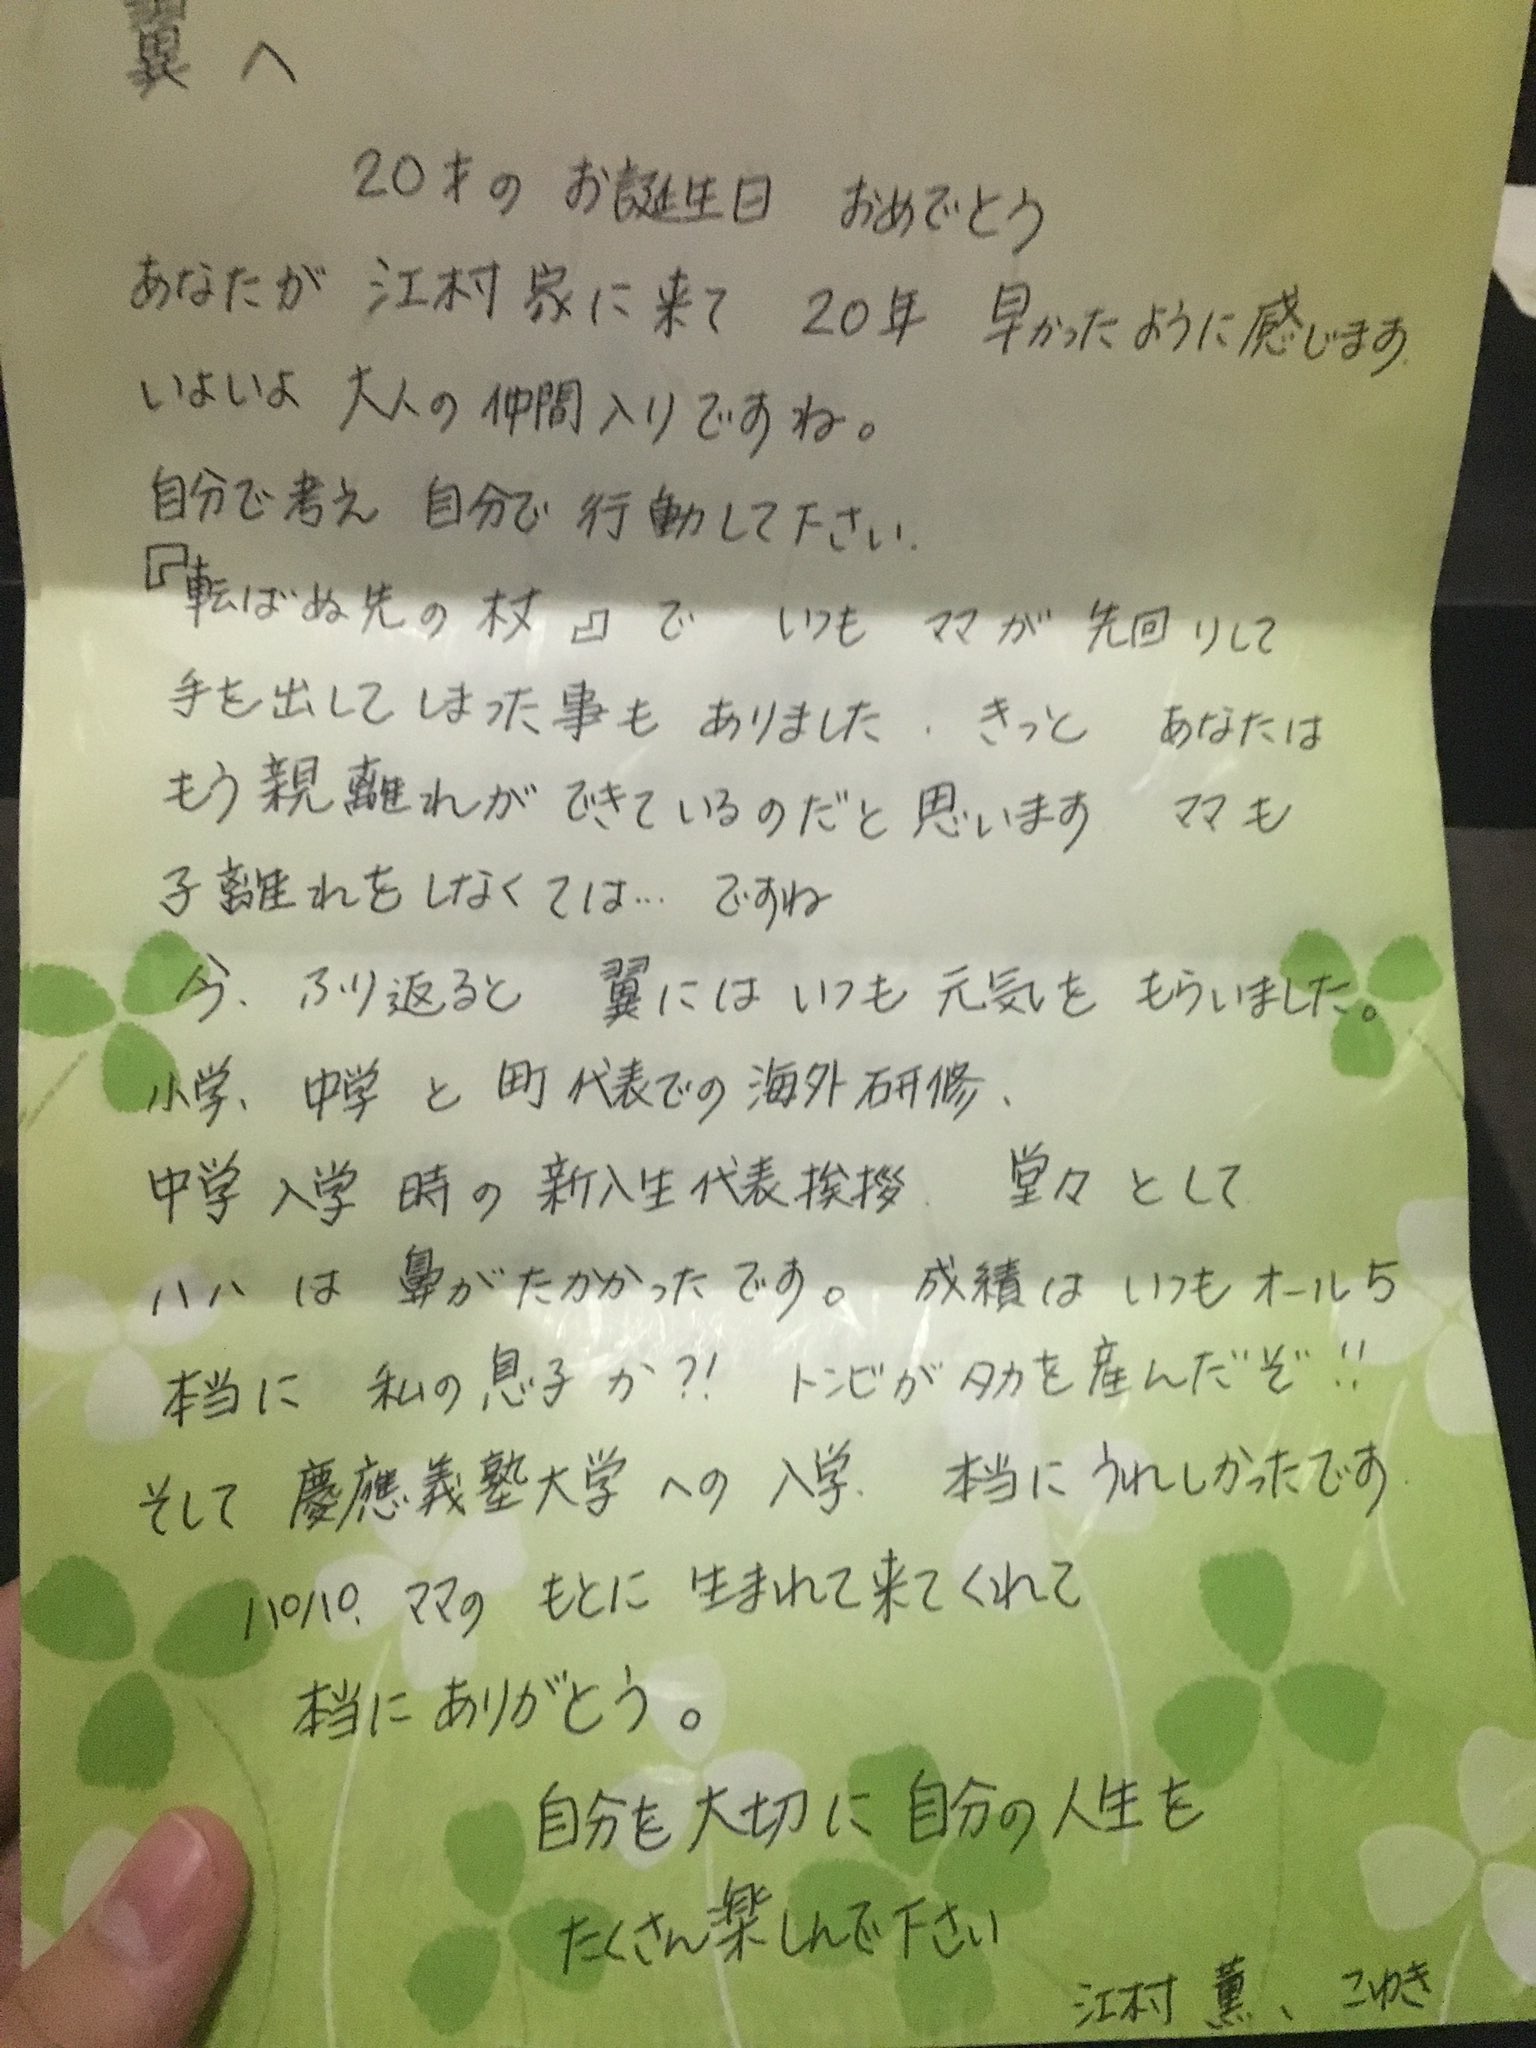 翼へ
20才の お誕生日 おめでとう
あなたが 江村家に来て 20年 早かったように感じます.
いよいよ 大人の仲間入りですね。
自分で考え 自分で行動して下さい.
『転ばぬ先の杖』で いつも ママが先回りして
手を出してしまった事も ありました. きっと あなたは
もう親離れができているのだと思います ママも
子離れをしなくては… ですね
今、ふり返ると 翼にはいつも元気を もらいました。
小学、中学と町代表での海外研修、
中学入学時の新入生代表挨拶. 堂々として
ハハは鼻がたかかったです。成績はいつもオール5
本当に 私の息子か?! トンビがタカを産んだぞ!!
そして慶應義塾大学への入学. 本当にうれしかったです.
10/10. ママの もとに 生まれて来てくれて
本当にありがとう。
自分を大切に 自分の人生を
たくさん楽しんで下さい
江村 薫、こゆき